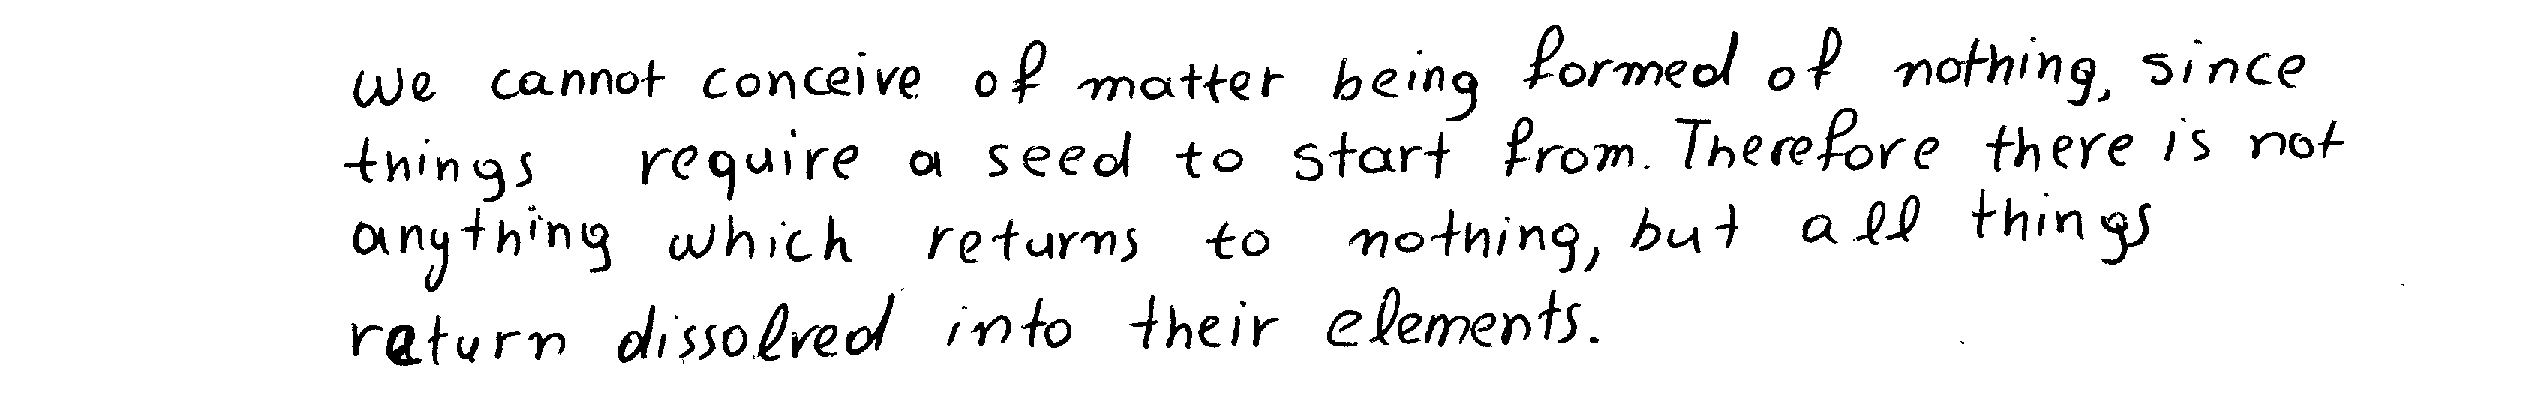 we cannot conceive of matter being formed of nothing, since
things require a seed to start from. Therefore there is not
anything which returns to nothing, but all things
return dissolved into their elements.